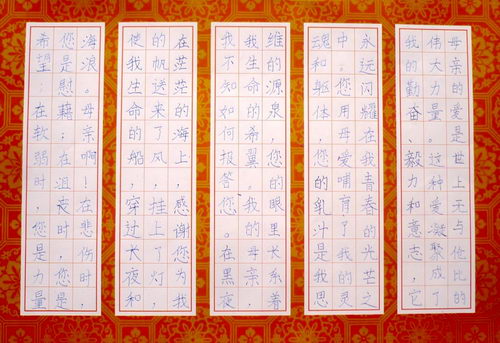 母亲的爱是世上无与伦比的
伟大力量。这种爱凝聚成了
我的勤奋、毅力和意志，它
永远闪耀在我青春的光芒之
中。您用母爱哺育了我的灵
魂和躯体，您的乳汁是我思
维的源泉，您的眼里长系着
我生命的希翼。我的母亲，
我不知如何报答您。在黑夜，
在茫茫的海上，感谢您为我
的帆送来了风，挂上了灯，
使我生命的船，穿过长夜和
海浪。母亲啊！在悲伤时，
您是慰藉；在沮丧时，您是
希望；在软弱时，您是力量